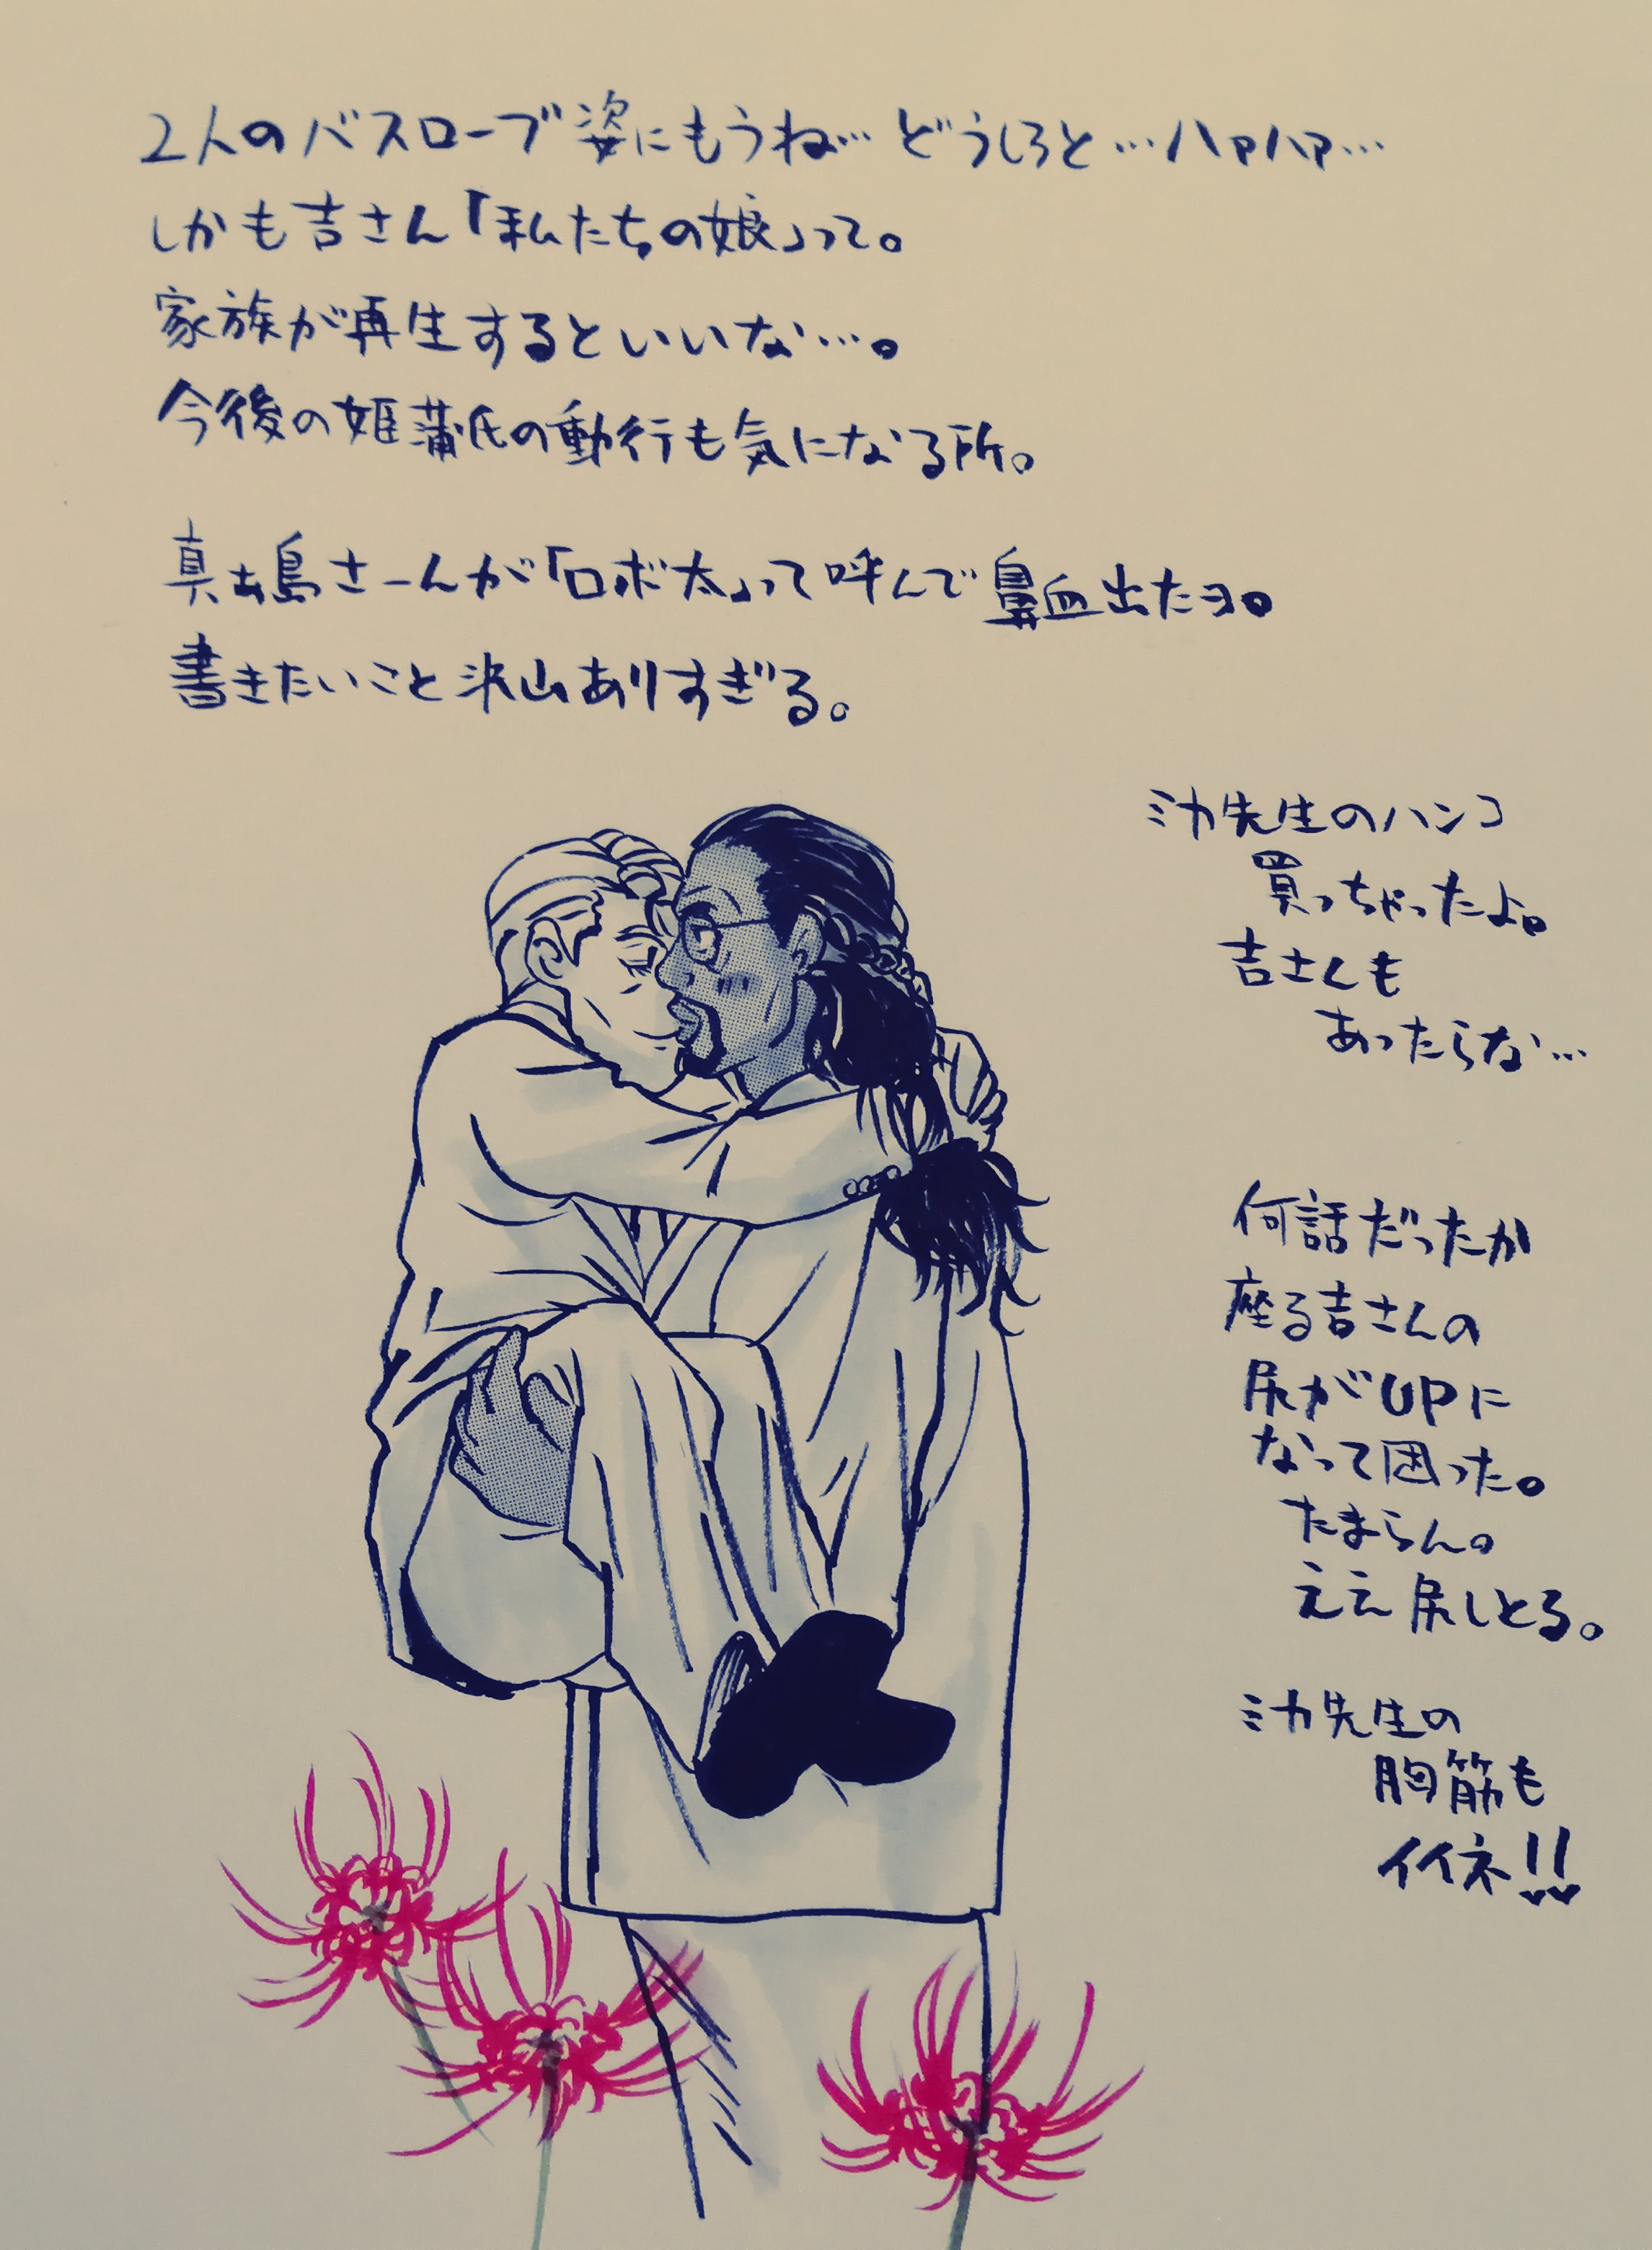 2人のバスローブ姿にもうね… どうしろと…ハァハァ…
しかも吉さん「私たちの娘」って。
家族が再生するといいな…。
今後の姫蒲氏の動行も気になる所。
真ま島さーんが「ロボ太」って呼んで鼻血出たヨ。
書きたいこと沢山ありすぎる。
ミカ先生のハンコ
買っちゃったよ。
吉さんも
あったらな…
何話だったか
座る吉さんの
尻がUPに
なって困った。
たまらん。
ええ尻しとる。
ミカ先生の
胸筋も
イイネ!!